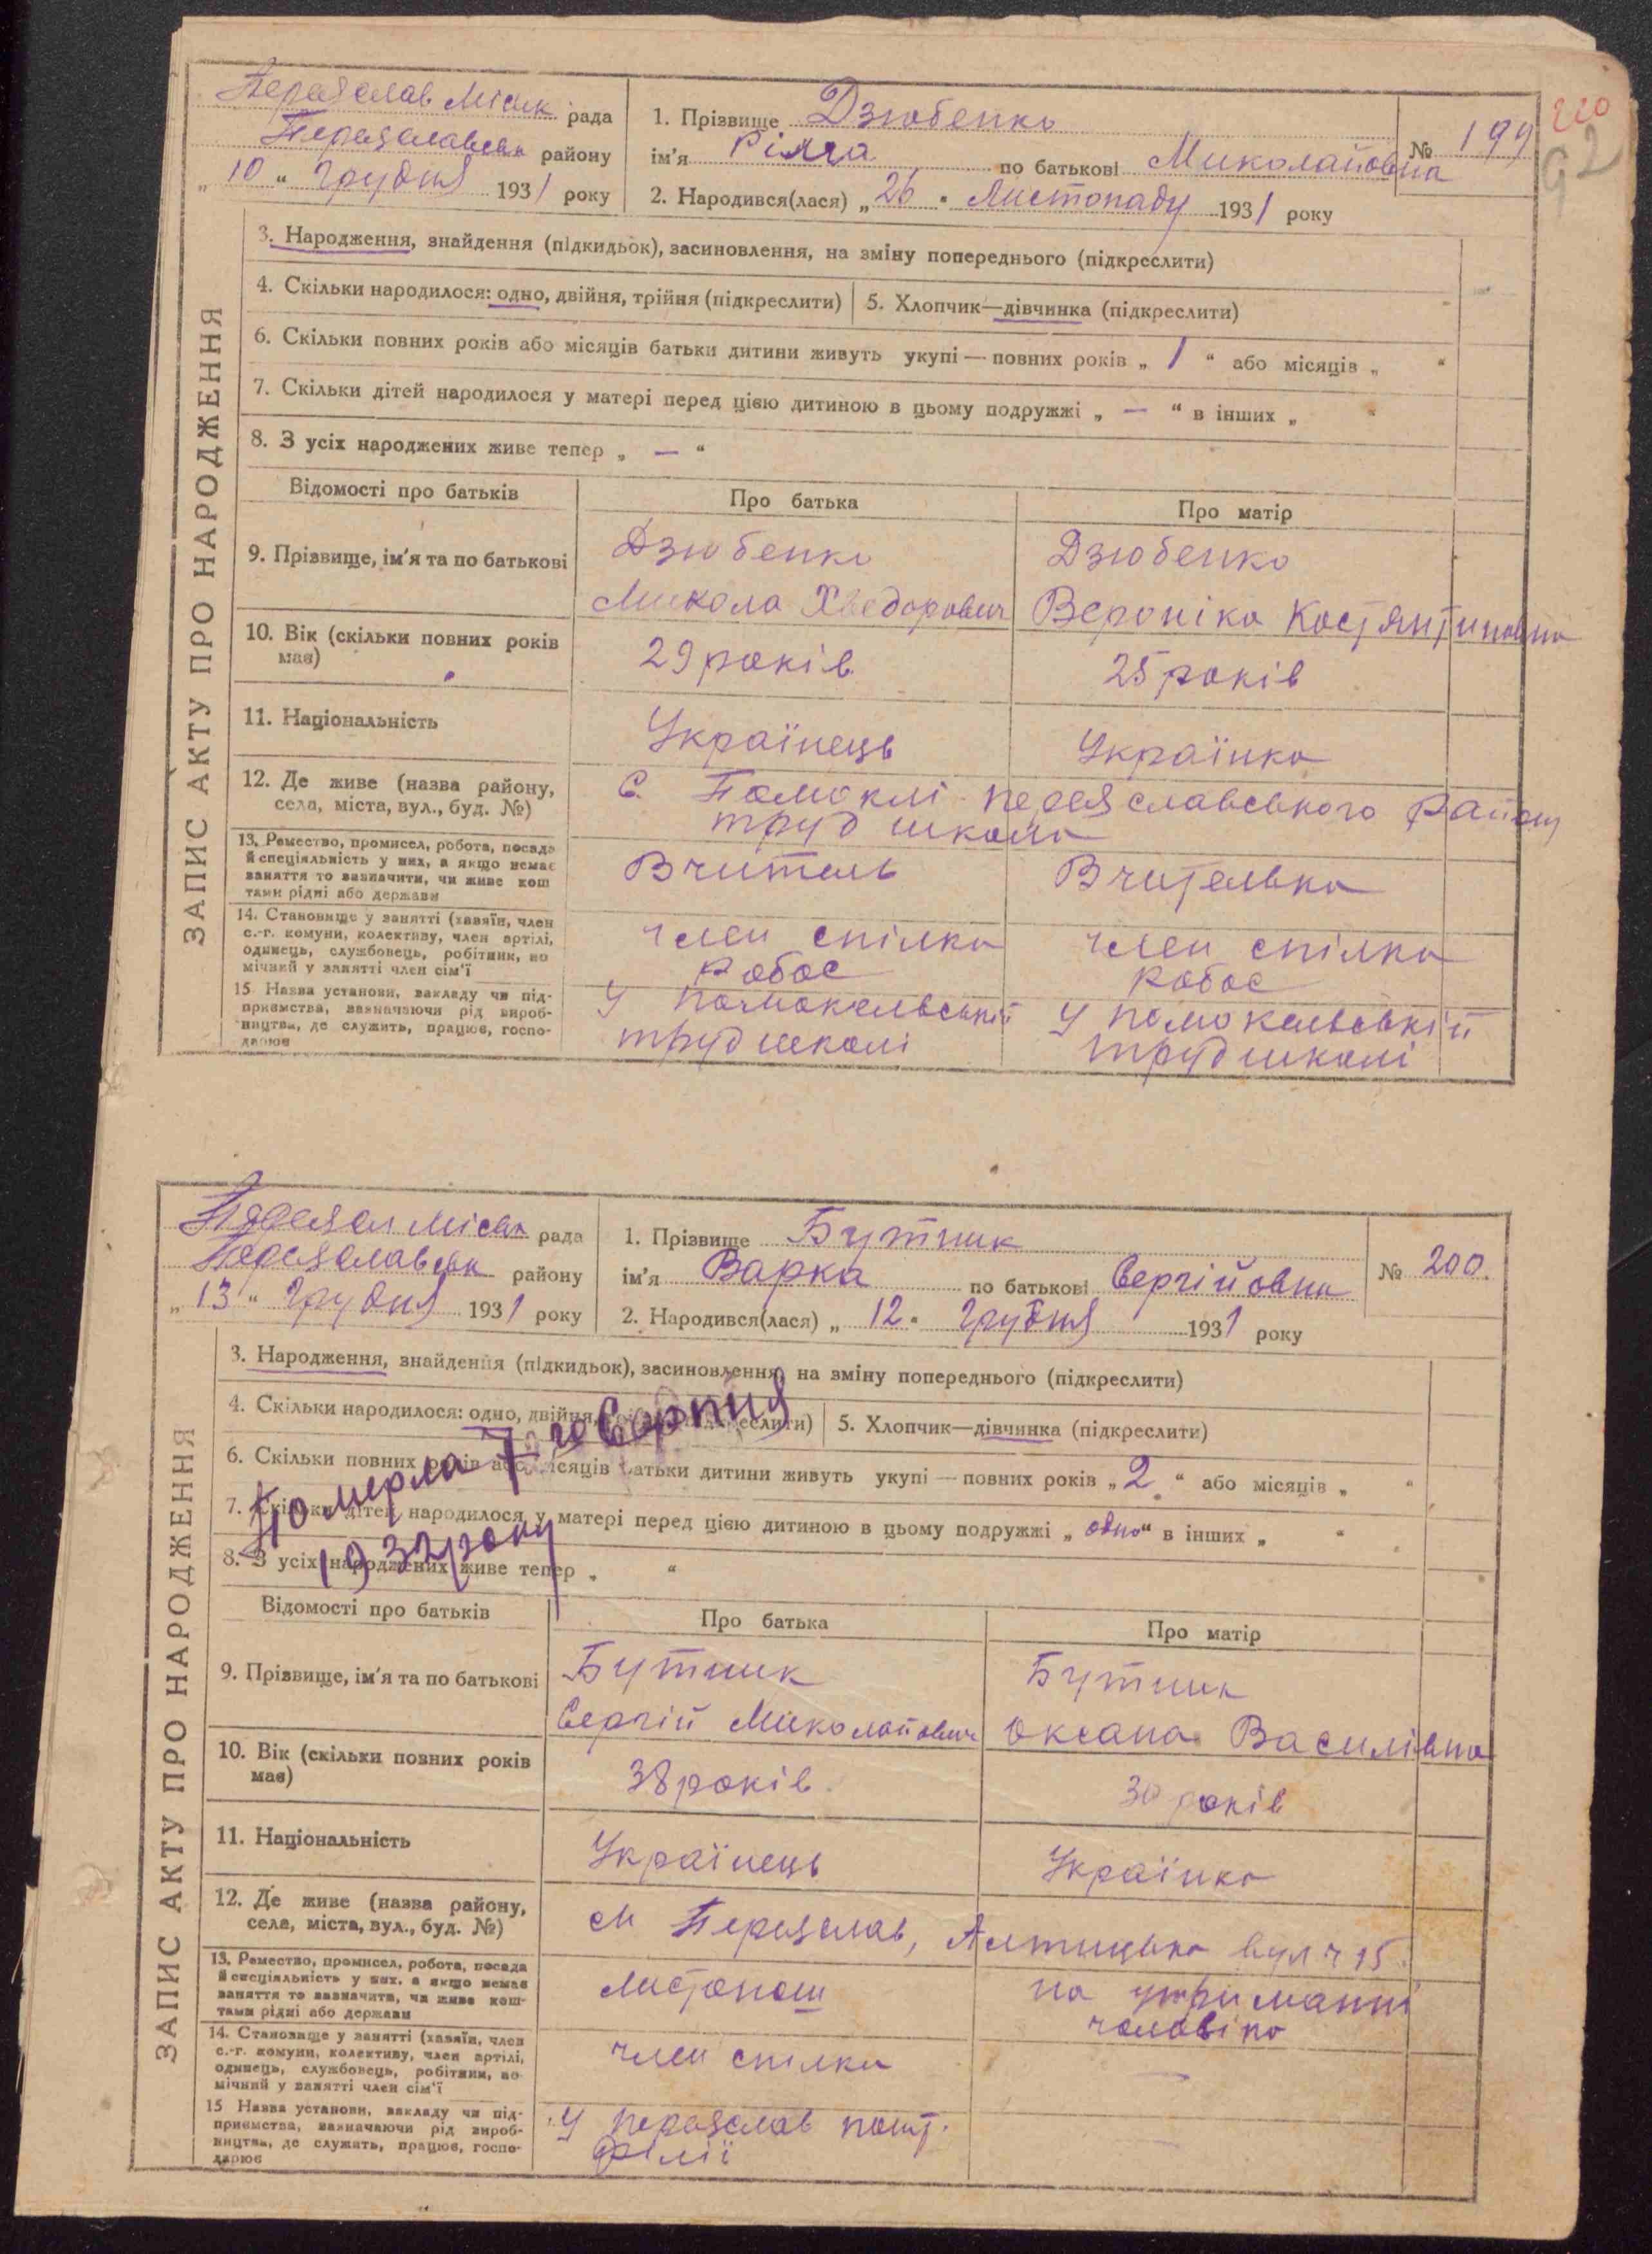 Переяслав Міськ рада
Переяславськ району
„ 10 “ Грудня 1931 року
1. Прізвище Дзюбенко
ім'я Рімма по батькові Миколаївна
№ 199
220
92
2. Народився(лася) „ 26 “ Листопаду 1931 року
ЗАПИС АКТУ ПРО НАРОДЖЕННЯ
3. Народження, знайдення (підкидьок), засиновлення, на зміну попереднього (підкреслити)
4. Скільки народилося: одно, двійня, трійня (підкреслити) 5. Хлопчик—дівчинка (підкреслити)
6. Скільки повних років або місяців батьки дитини живуть укупі — повних років „ 1 “ або місяців „ “
7. Скільки дітей народилося у матері перед цією дитиною в цьому подружжі „ — “ в інших „ “
8. З усіх народжених живе тепер „ — “
Відомості про батьків Про батька Про матір
9. Прізвище, ім'я та по батькові
Дзюбенко
Микола Хведорович
Дзюбенко
Вероніка Костянтиновна
10. Вік (скільки повних років
має)
29 років
25 років
11. Національність
Українець
Українка
12. Де живе (назва району,
села, міста, вул., буд. №)
с. Помоклі переяславського району
труд школа
13. Ремество, промисел, робота, посада
й спеціяльність у них, а якщо немає
заняття то зазначити, чи живе кош
тами рідні або держави
Вчитель
Вчителька
14. Становище у занятті (хазяїн, член
с.-г. комуни, колективу, член артілі,
одинець, службовець, робітник, по
мічний у занятті член сім'ї
член спілки
робос
член спілки
робос
15. Назва установи, закладу чи під-
приємства, зазначаючи рід вироб-
ництва, де служить, працює, госпо-
дарює
У помокельській
трудшколі
У помокельській
трудшколі
Переяслав Міськ рада
Переяславськ району
„ 13 “ Грудня 1931 року
1. Прізвище Бутник
ім'я Варка по батькові Сергійовна
№ 200.
2. Народився(лася) „ 12 “ Грудня 1931 року
ЗАПИС АКТУ ПРО НАРОДЖЕННЯ
3. Народження, знайдення (підкидьок), засиновлення, на зміну попереднього (підкреслити)
4. Скільки народилося: одно, двійня, трійня (підкреслити) 5. Хлопчик—дівчинка (підкреслити)
6. Скільки повних років або місяців батьки дитини живуть укупі — повних років „ 2 “ або місяців „ “
7. Скільки дітей народилося у матері перед цією дитиною в цьому подружжі „ одно “ в інших „ “
8. З усіх народжених живе тепер „ “
Померла 7 го Серпня
1932 року
Відомості про батьків Про батька Про матір
9. Прізвище, ім'я та по батькові
Бутник
Сергій Миколайович
Бутник
Оксана Василівна
10. Вік (скільки повних років
має)
38 років
30 років
11. Національність
Українець
Українка
12. Де живе (назва району,
села, міста, вул., буд. №)
м Переяслав, Алтицька вул ч 15.
13. Ремество, промисел, робота, посада
й спеціяльність у них, а якщо немає
заняття то зазначити, чи живе кош-
тами рідні або держави
листонош
на утриманні
чоловіка
14. Становище у занятті (хазяїн, член
с.-г. комуни, колективу, член артілі,
одинець, службовець, робітник, по
мічний у занятті член сім'ї
член спілки
—
15 Назва установи, закладу чи під-
приємства, зазначаючи рід вироб-
ництва, де служить, працює, госпо-
дарює
У переяслав пошт.
філії
—